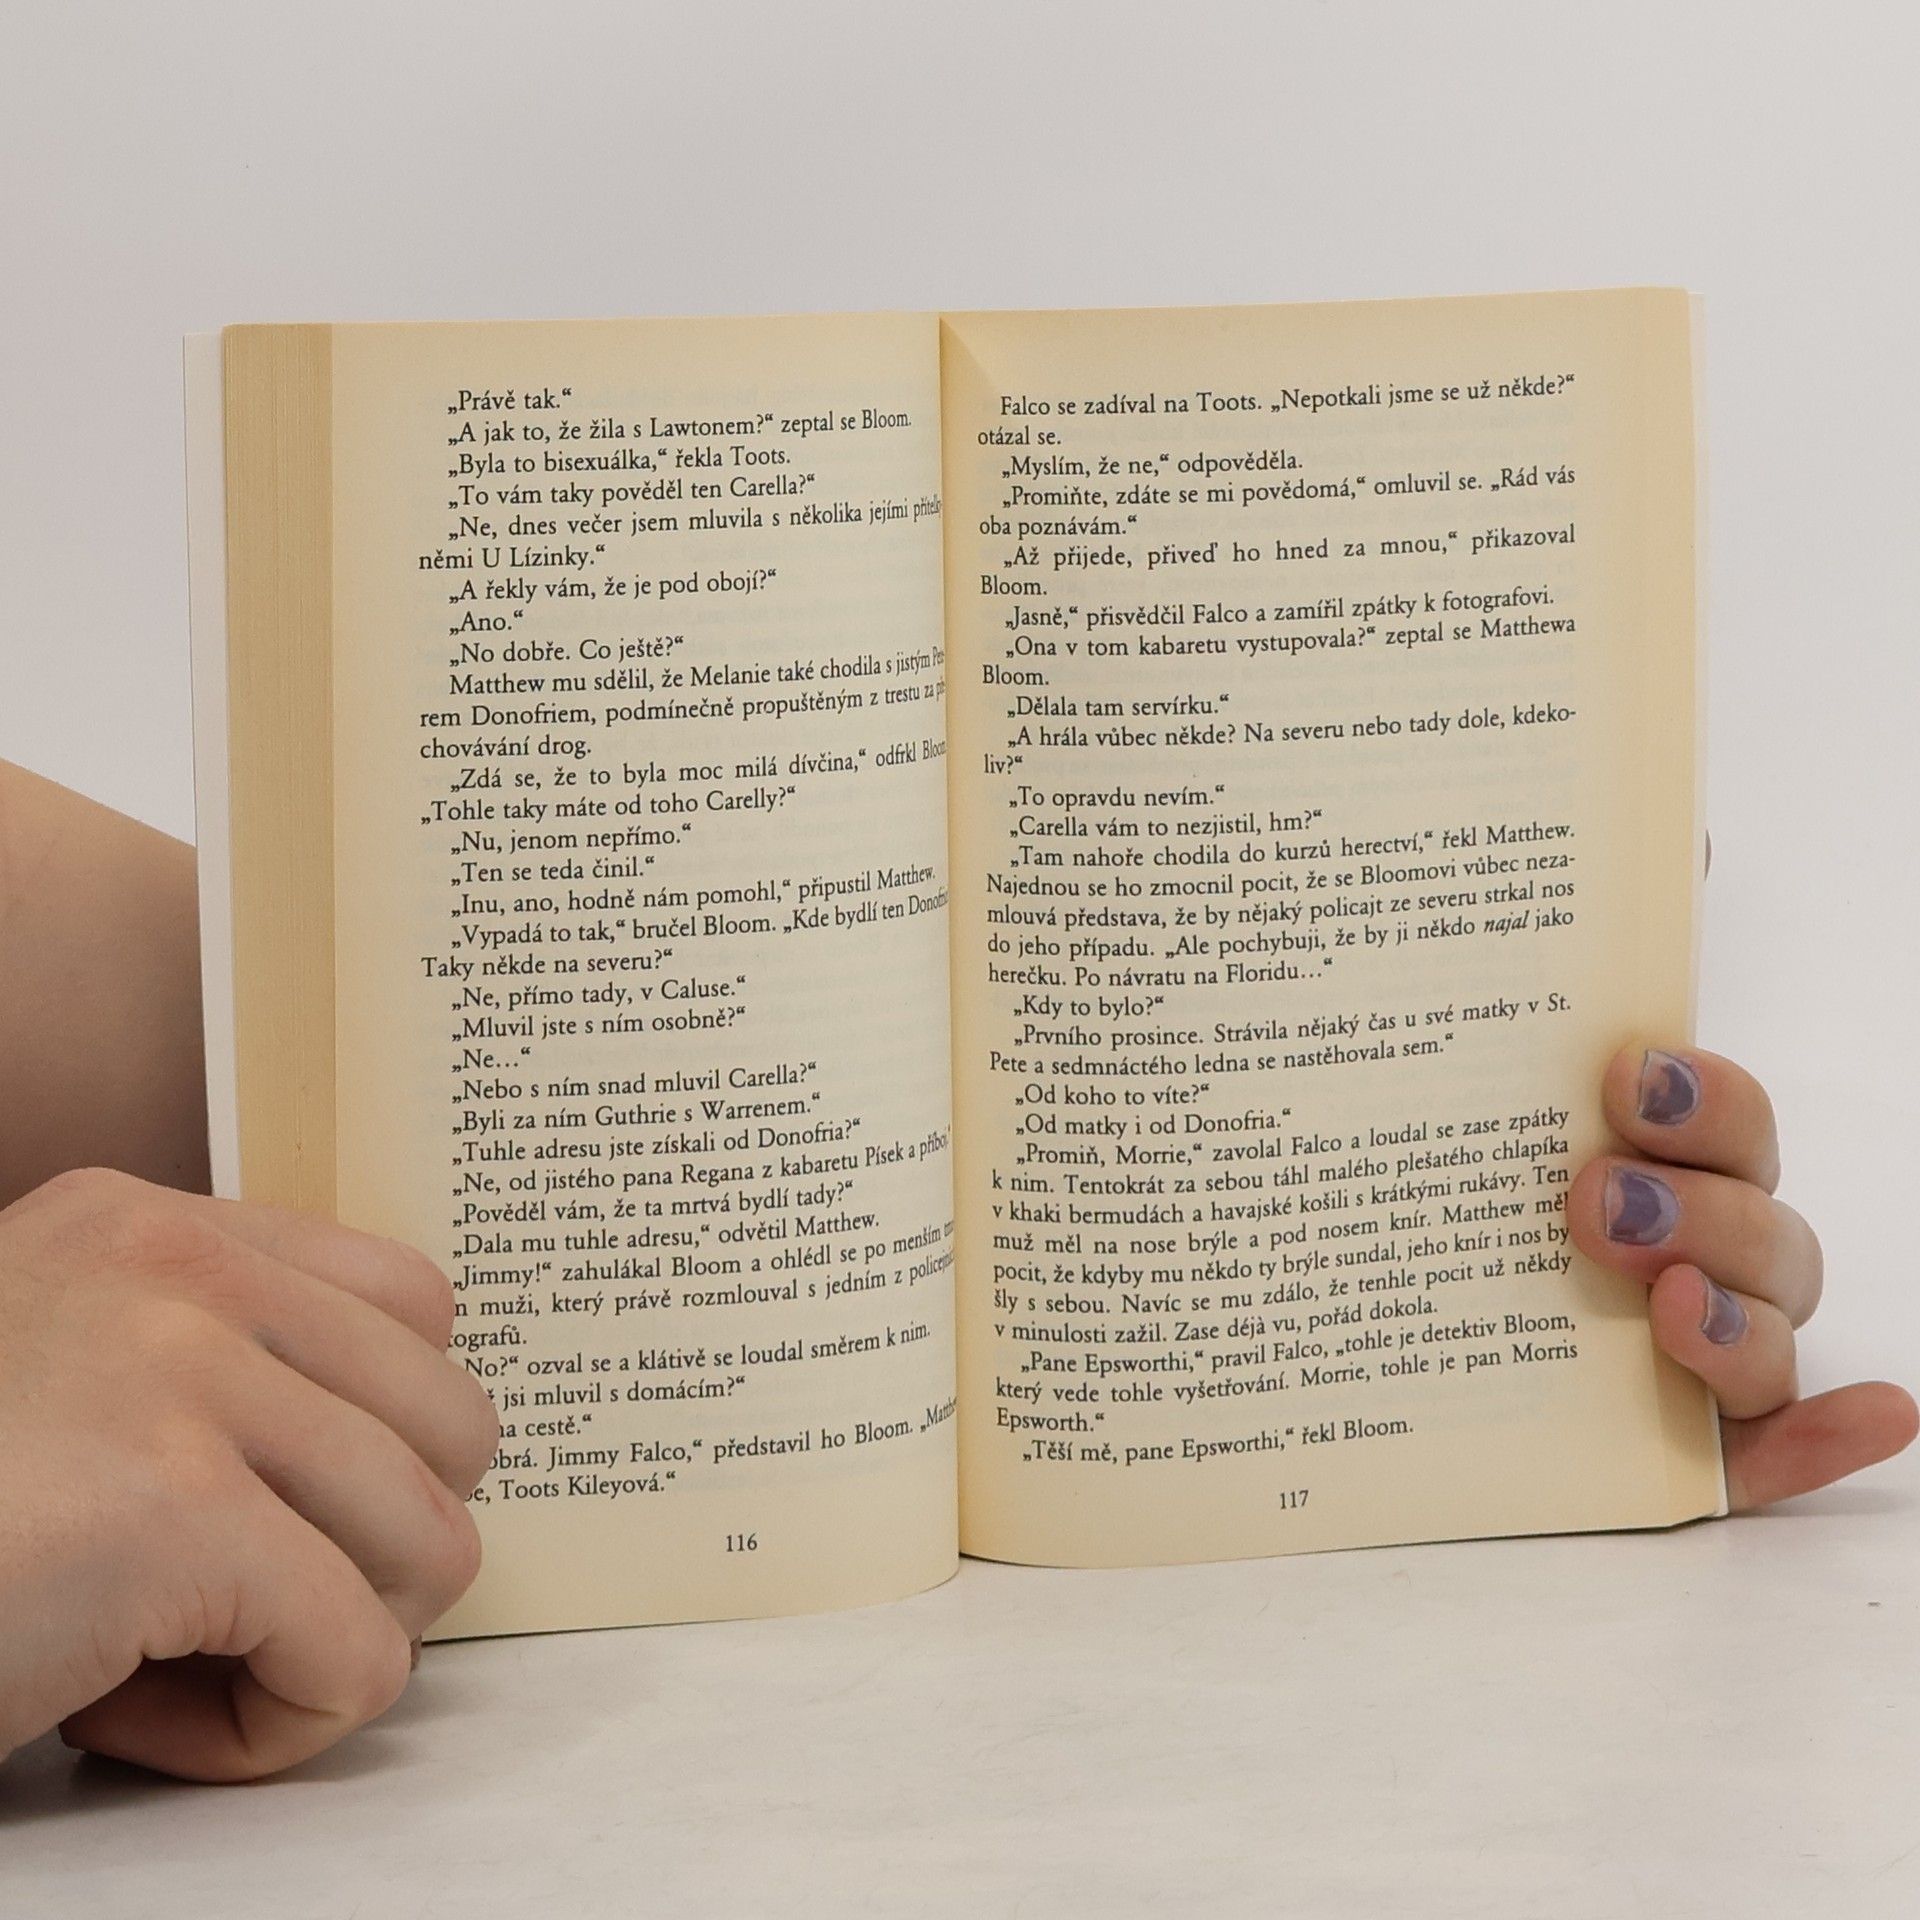 „Právě tak.“
„A jak to, že žila s Lawtonem?“ zeptal se Bloom.
„Byla to bisexuálka,“ řekla Toots.
„To vám taky pověděl ten Carella?“
„Ne, dnes večer jsem mluvila s několika jejími
němi U Lízinky.“
„A řekly vám, že je pod obojí?“
„Ano.“
„No dobře. Co ještě?“
Matthew mu sdělil, že Melanie také chodila s jistým
rem Donofriem, podmínečně propuštěným z trestu za
chovávání drog.
„Zdá se, že to byla moc milá dívčina,“ odfrkl
„Tohle taky máte od toho Carelly?“
„Nu, jenom nepřímo.“
„Ten se teda činil.“
„Inu, ano, hodně nám pomohl,“ připustil Matthew.
„Vypadá to tak,“ bručel Bloom. „Kde bydlí ten
Taky někde na severu?“
„Ne, přímo tady, v Caluse.“
„Mluvil jste s ním osobně?“
„Ne…“
„Nebo s ním snad mluvil Carella?“
„Byli za ním Guthrie s Warrenem.“
„Tuhle adresu jste získali od Donofria?“
„Ne, od jistého pana Regana z kabaretu Písek a
„Pověděl vám, že ta mrtvá bydlí tady?“
„Dala mu tuhle adresu,“ odvětil Matthew.
„Jimmy!“ zahulákal Bloom a ohlédl se po menším
muži, který právě rozmlouval s jedním z
No?“ ozval se a klátivě se loudal směrem k nim.
jsi mluvil s domácím?“
na cestě.“
Jimmy Falco,“ představil ho Bloom.
Toots Kileyová.“
116
Falco se zadíval na Toots. „Nepotkali jsme se už někde?“
otázal se.
„Myslím, že ne,“ odpověděla.
„Promiňte, zdáte se mi povědomá,“ omluvil se. „Rád vás
oba poznávám.“
„Až přijede, přiveď ho hned za mnou,“ přikazoval
Bloom.
„Jasně,“ přisvědčil Falco a zamířil zpátky k fotografovi.
„Ona v tom kabaretu vystupovala?“ zeptal se Matthewa
Bloom.
„Dělala tam servírku.“
„A hrála vůbec někde? Na severu nebo tady dole, kdeko-
liv?“
„To opravdu nevím.“
„Carella vám to nezjistil, hm?“
„Tam nahoře chodila do kurzů herectví,“ řekl Matthew.
Najednou se ho zmocnil pocit, že se Bloomovi vůbec neza-
mlouvá představa, že by nějaký policajt ze severu strkal nos
do jeho případu. „Ale pochybuji, že by ji někdo najal jako
herečku. Po návratu na Floridu…“
„Kdy to bylo?“
„Prvního prosince. Strávila nějaký čas u své matky v St.
Pete a sedmnáctého ledna se nastěhovala sem.“
„Od koho to víte?“
„Od matky i od Donofria.“
„Promiň, Morrie,“ zavolal Falco a loudal se zase zpátky
k nim. Tentokrát za sebou táhl malého plešatého chlapíka
v khaki bermudách a havajské košili s krátkými rukávy. Ten
muž měl na nose brýle a pod nosem knír. Matthew měl
pocit, že kdyby mu někdo ty brýle sundal, jeho knír i nos by
šly s sebou. Navíc se mu zdálo, že tenhle pocit už někdy
v minulosti zažil. Zase déjà vu, pořád dokola.
„Pane Epsworthi,“ pravil Falco, „tohle je detektiv Bloom,
který vede tohle vyšetřování. Morrie, tohle je pan Morris
Epsworth.“
„Těší mě, pane Epsworthi,“ řekl Bloom.
117